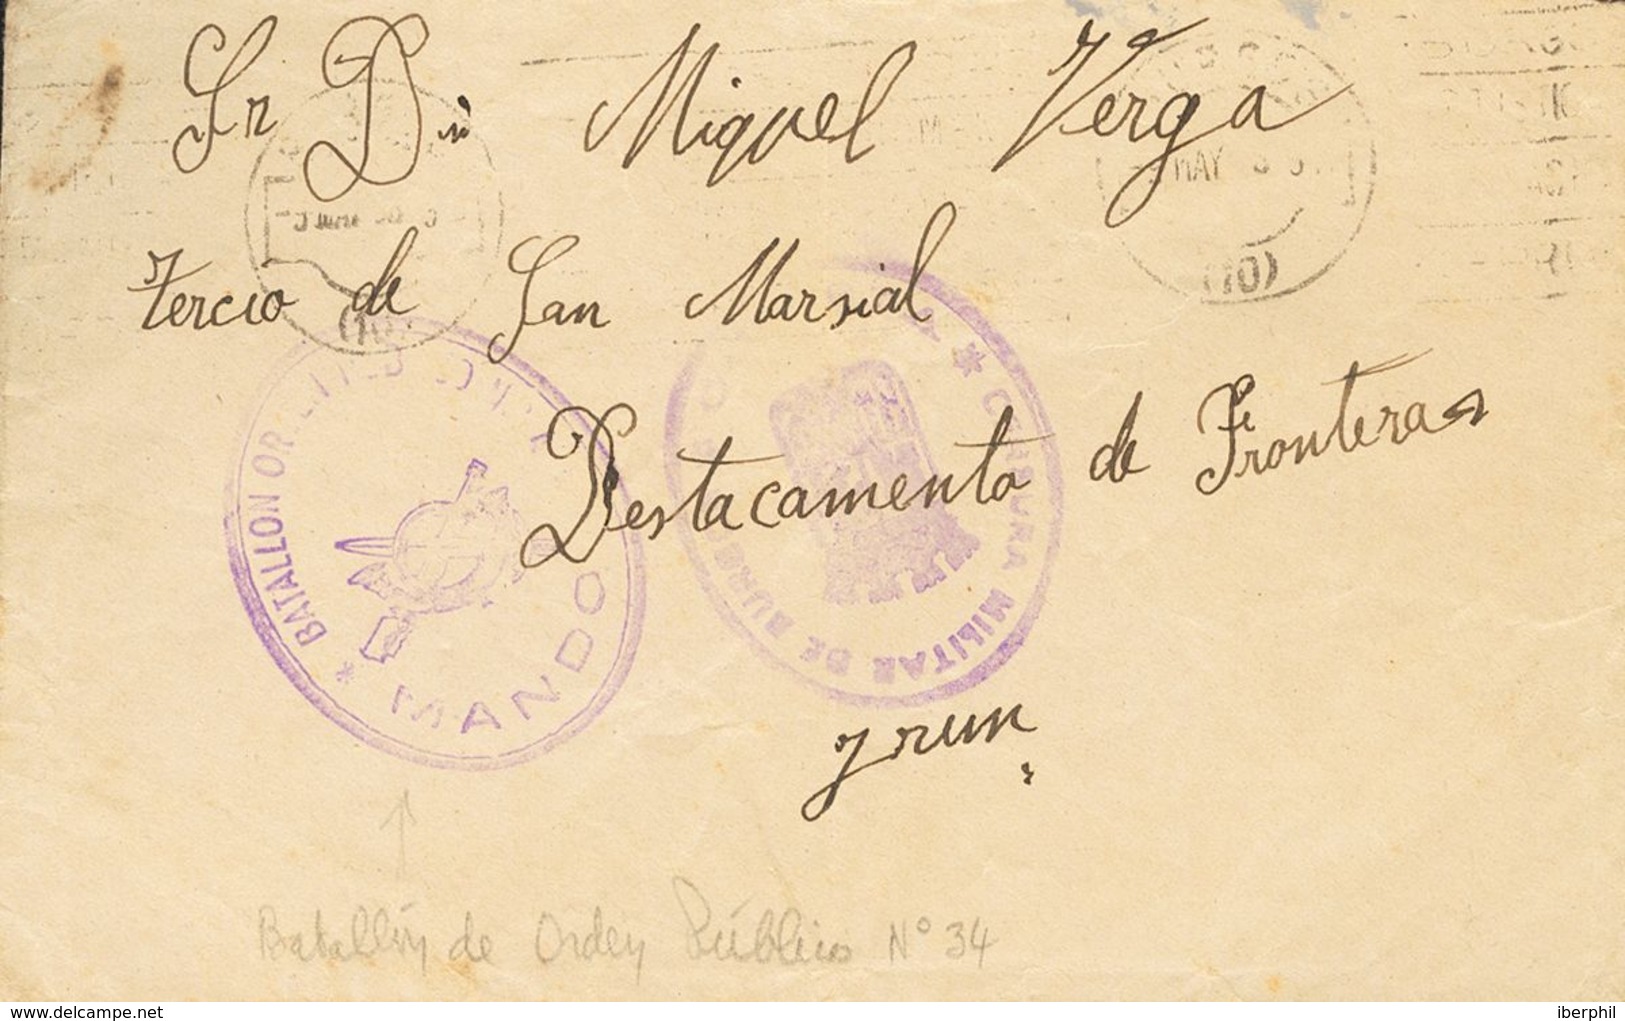 Sr Dn Miguel Verga
MAY
(10)
(10)
tercio de San Marsial
BATALLON ORDEN
MANDO
CENSURA MILITAR DE BURGOS
Destacamento de Fronteras
Yrun
Batallón de Orden Público Nº 34
delcampe.net
iberphil